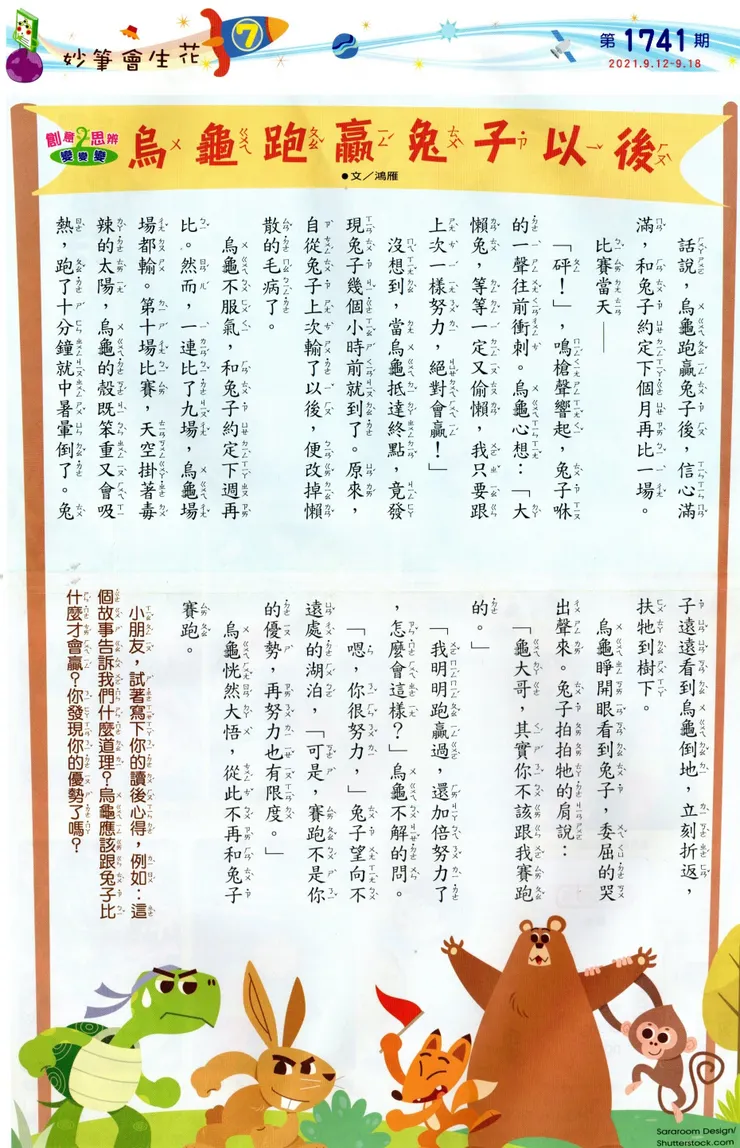 妙筆會生花
7
第1741期
2021.9.12-9.18
創意思辨
變變變
烏龜跑贏兔子以後
●文／鴻雁
話說，烏龜跑贏兔子後，信心滿
滿，和兔子約定下個月再比一場。
比賽當天——
「砰！」，鳴槍聲響起，兔子咻
的一聲往前衝刺。烏龜心想：「大
懶兔，等等一定又偷懶，我只要跟
上次一樣努力，絕對會贏！」
沒想到，當烏龜抵達終點，竟發
現兔子幾個小時前就到了。原來，
自從兔子上次輸了以後，便改掉懶
散的毛病了。
烏龜不服氣，和兔子約定下週再
比。然而，一連比了九場，烏龜場
場都輸。第十場比賽，天空掛著毒
辣的太陽，烏龜的殼既笨重又會吸
熱，跑了十分鐘就中暑暈倒了。兔
子遠遠看到烏龜倒地，立刻折返，
扶牠到樹下。
烏龜睜開眼看到兔子，委屈的哭
出聲來。兔子拍拍牠的肩說：
「龜大哥，其實你不該跟我賽跑
的。」
「我明明跑贏過，還加倍努力了
，怎麼會這樣？」烏龜不解的問。
「嗯，你很努力，」兔子望向不
遠處的湖泊，「可是，賽跑不是你
的優勢，再努力也有限度。」
烏龜恍然大悟，從此不再和兔子
賽跑。
小朋友，試著寫下你的讀後心得，例如：這
個故事告訴我們什麼道理？烏龜應該跟兔子比
什麼才會贏？你發現你的優勢了嗎？
Sararoom Design/
Shutterstock.com